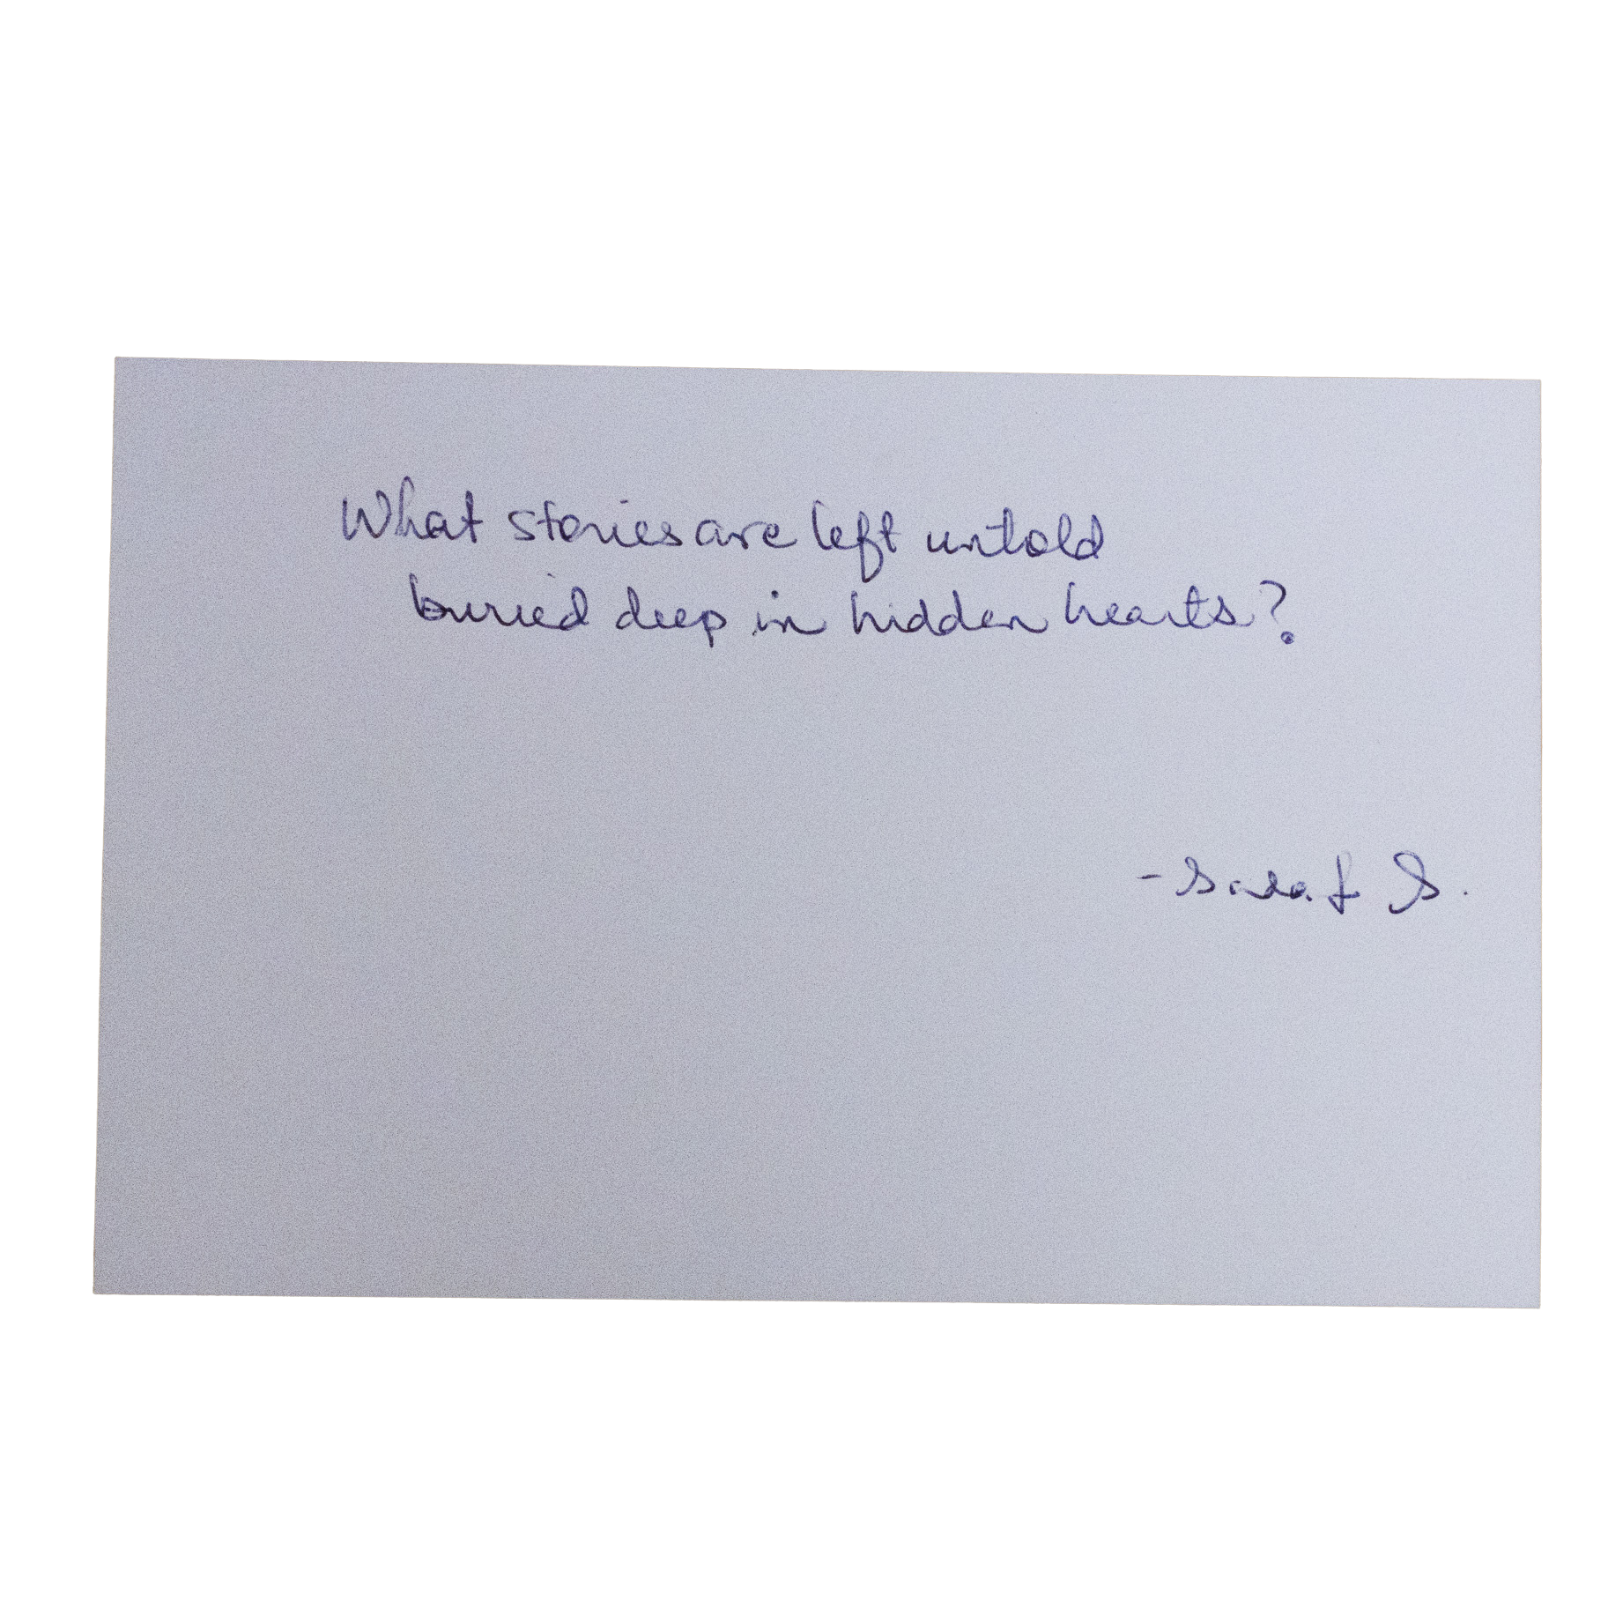 What stories are left untold
buried deep in hidden hearts?
S.